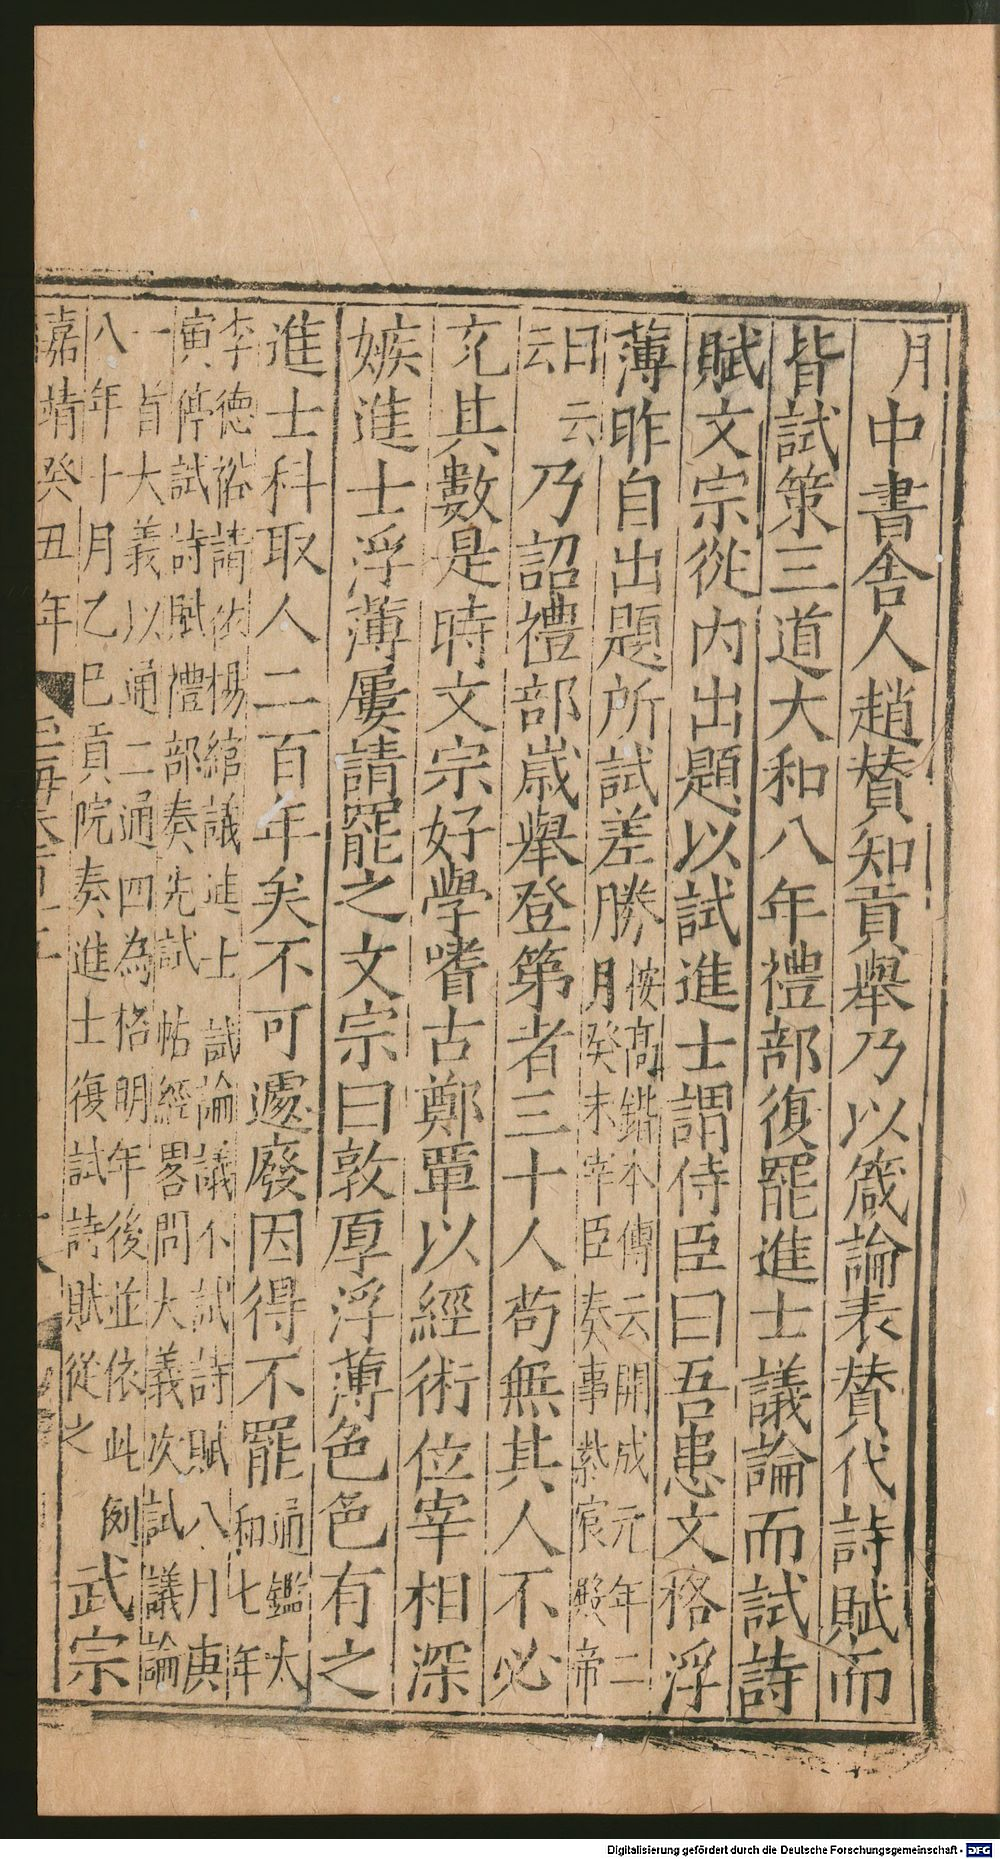 月中書舍人趙贊知貢舉乃以箴論表贊代詩賦而
皆試策三道大和八年禮部復罷進士議論而試詩
賦文宗從内出題以試進士謂侍臣曰吾患文格浮
薄昨自出題所試差勝按高鍇本傳云開成元年二
月癸未宰臣奏事紫宸殿帝
曰云
云乃詔禮部歲舉登第者三十人苟無其人不必
充其數是時文宗好學嗜古鄭覃以經術位宰相深
嫉進士浮薄屢請罷之文宗曰敦厚浮薄色色有之
進士科取人二百年矣不可遽廢因得不罷通鑑太
和七年
李德裕請依楊綰議進士試論議不試詩賦八月庚
寅停試詩賦禮部奏先試帖經畧問大義次試議論
一首大義以通二通四為格明年後並依此例
八年十月乙巳貢院奏進士復試詩賦從之武宗
嘉靖癸丑年
Digitalisierung gefördert durch die Deutsche Forschungsgemeinschaft - DFG